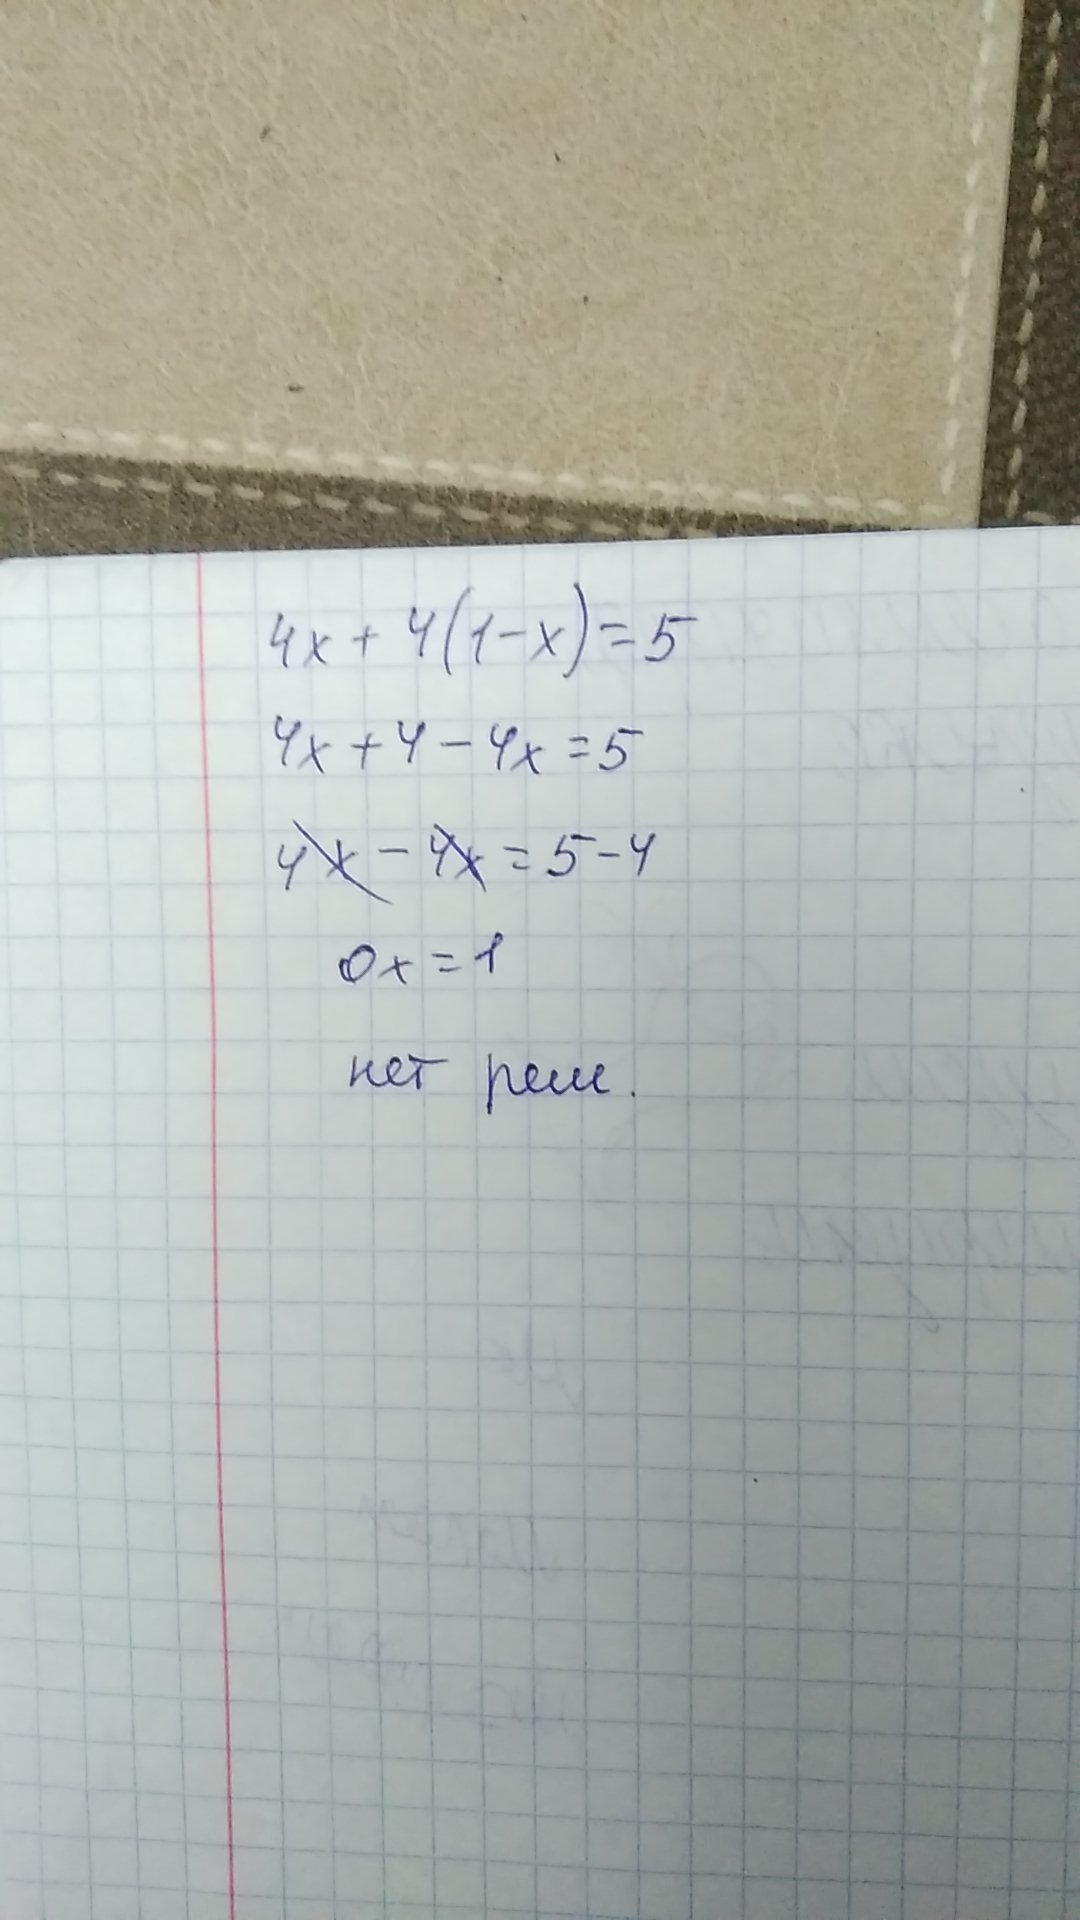 4x + 4(1-x) = 5
4x + 4 - 4x = 5
4x - 4x = 5-4
0x = 1
нет реш.